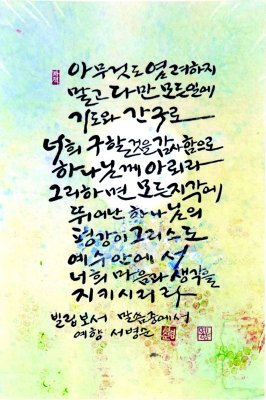 아무것도 염려하지
말고 다만 모든일에
기도와 간구로
너희 구할것을 감사함으로
하나님께 아뢰라
그리하면 모든지각에
뛰어난 하나님의
평강이 그리스도
예수안에서
너희 마음과 생각을
지키시리라
빌립보서 말씀중에서
여향 서병순